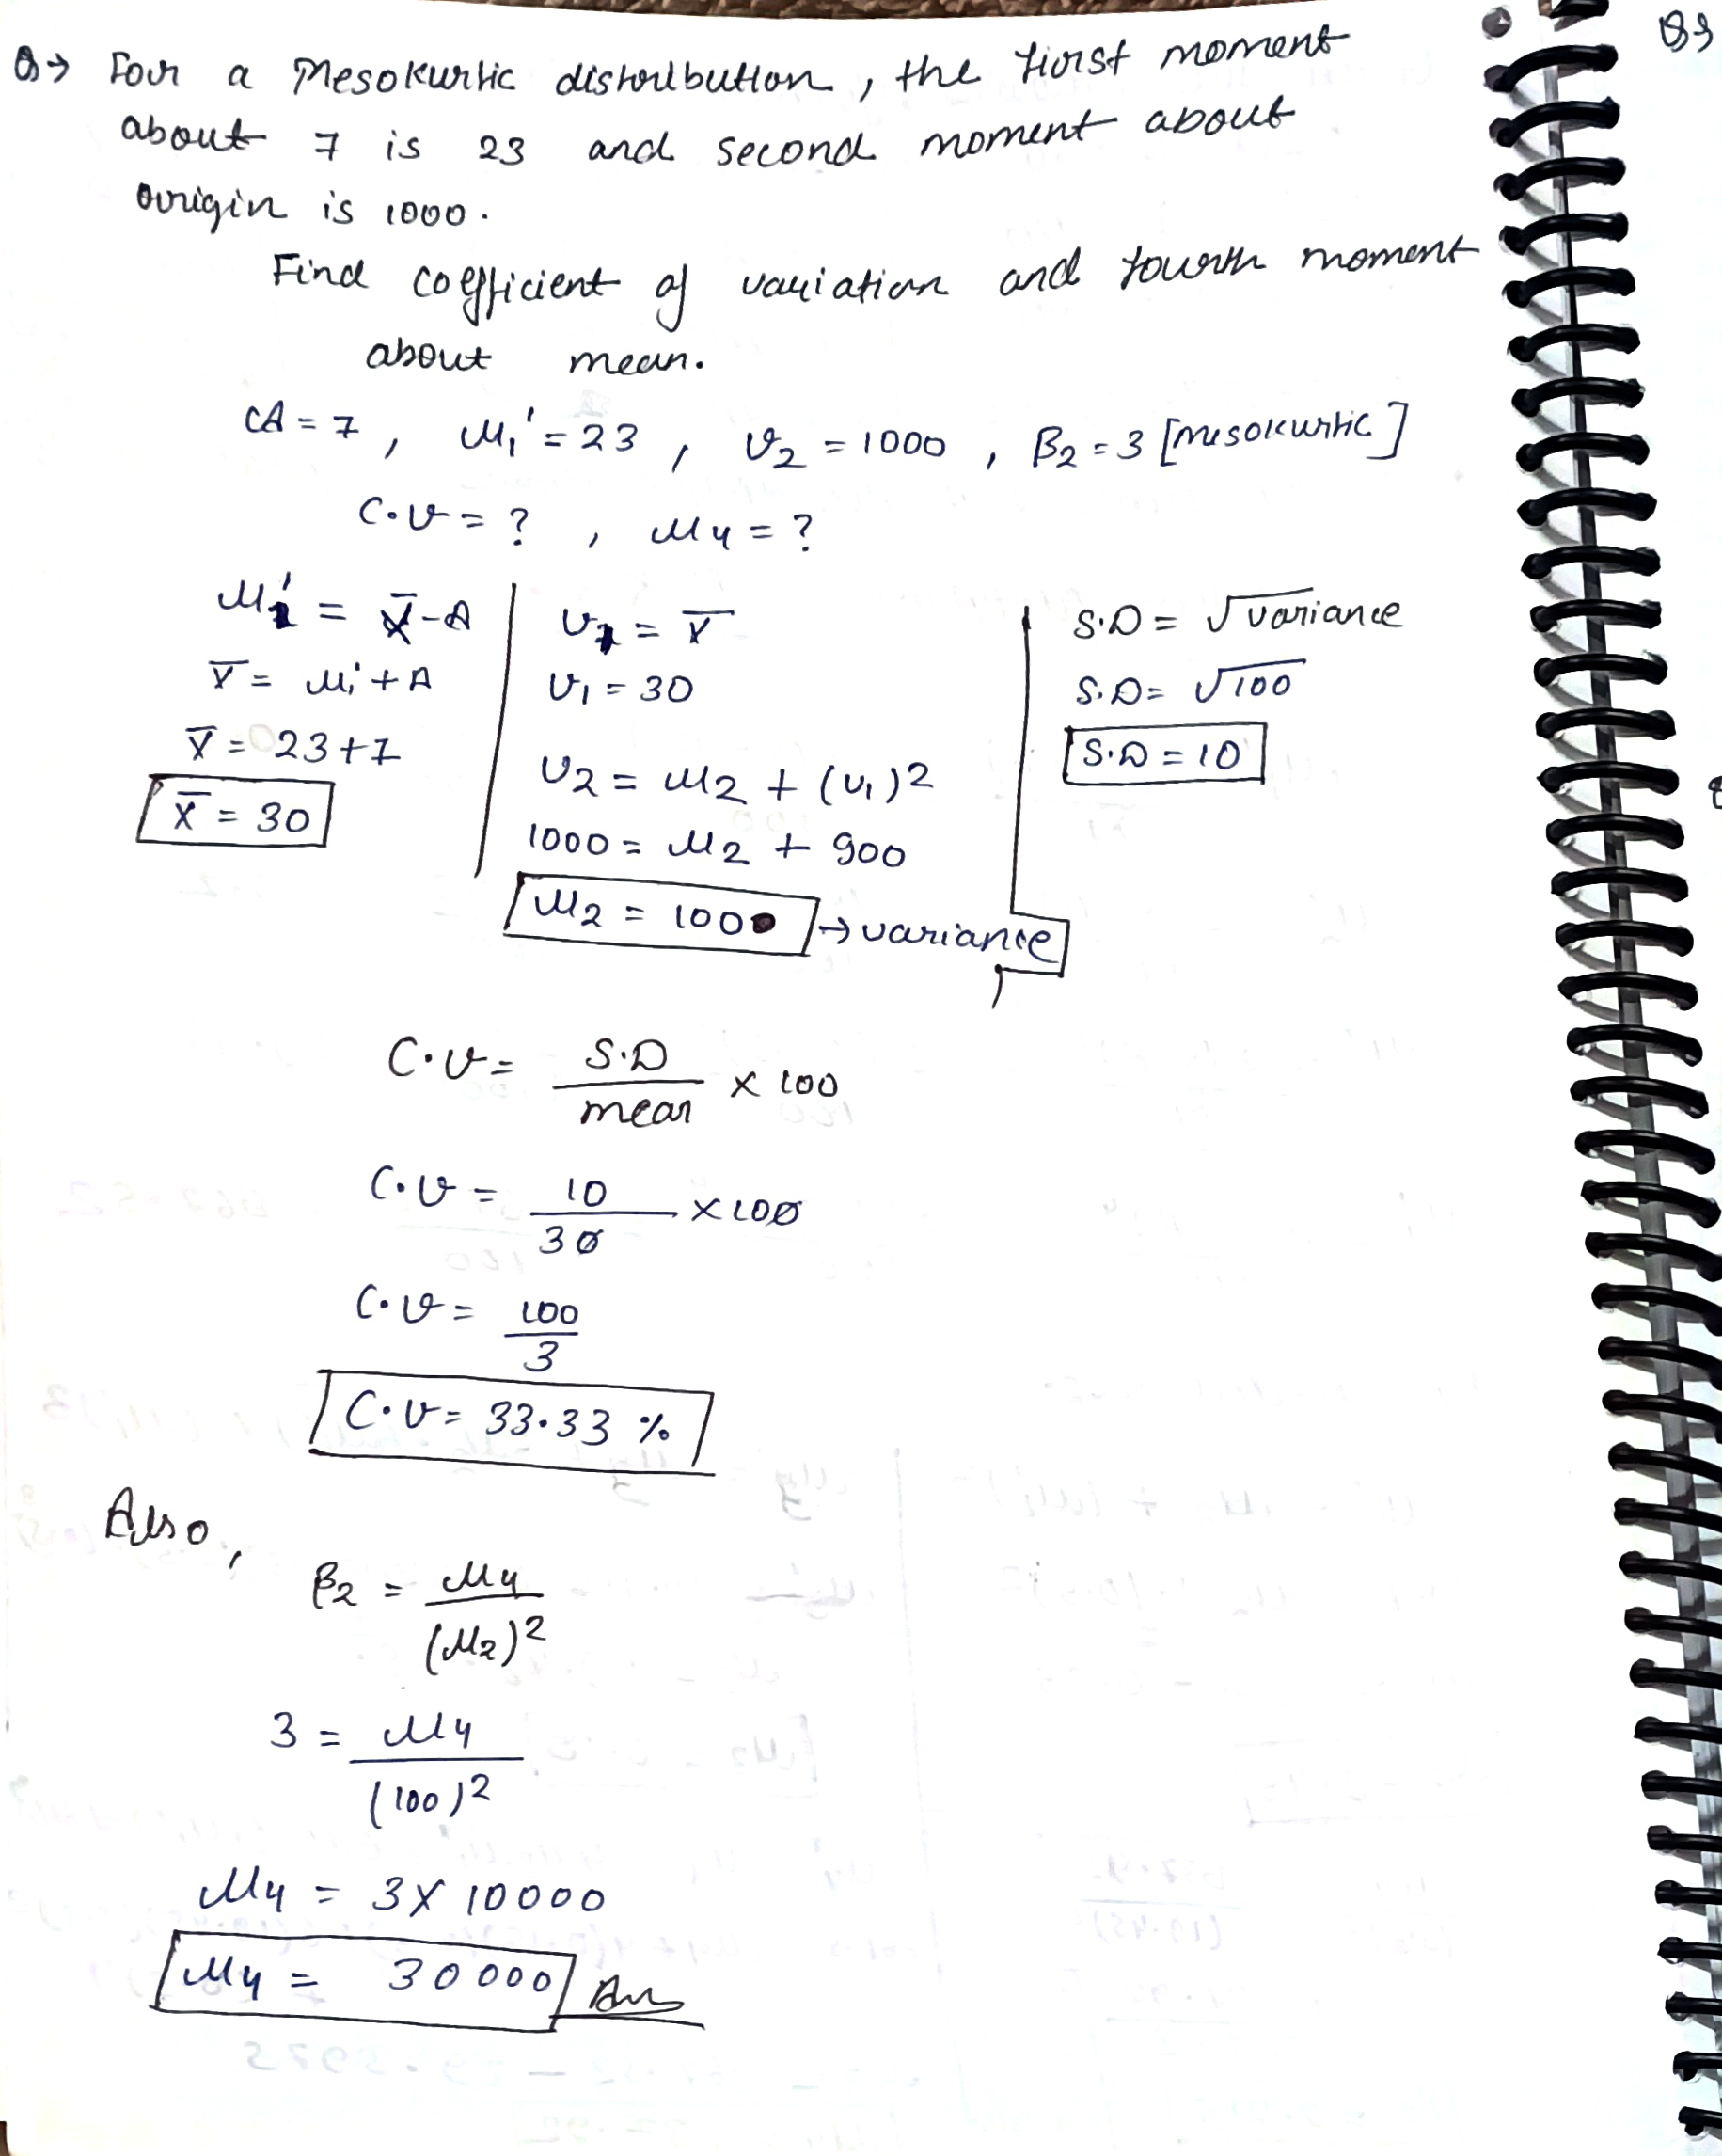 Q→ For a Mesokurtic distribution, the first moment
about 7 is 23 and second moment about
origin is 1000.
Find coefficient of variation and fourth moment
about mean.
A = 7, μ₁' = 23, v₂ = 1000, β₂ = 3 [mesokurtic]
C.V = ?, μ₄ = ?
μ₁' = X̄ - A
X̄ = μ₁' + A
X̄ = 23 + 7
X̄ = 30
v₁ = X̄
v₁ = 30
v₂ = μ₂ + (v₁)²
1000 = μ₂ + 900
μ₂ = 100 → variance
S.D = √variance
S.D = √100
S.D = 10
C.V = S.D / mean × 100
C.V = 10 / 30 × 100
C.V = 100 / 3
C.V = 33.33 %
Also,
β₂ = μ₄ / (μ₂)²
3 = μ₄ / (100)²
μ₄ = 3 × 10000
μ₄ = 30000 Ans